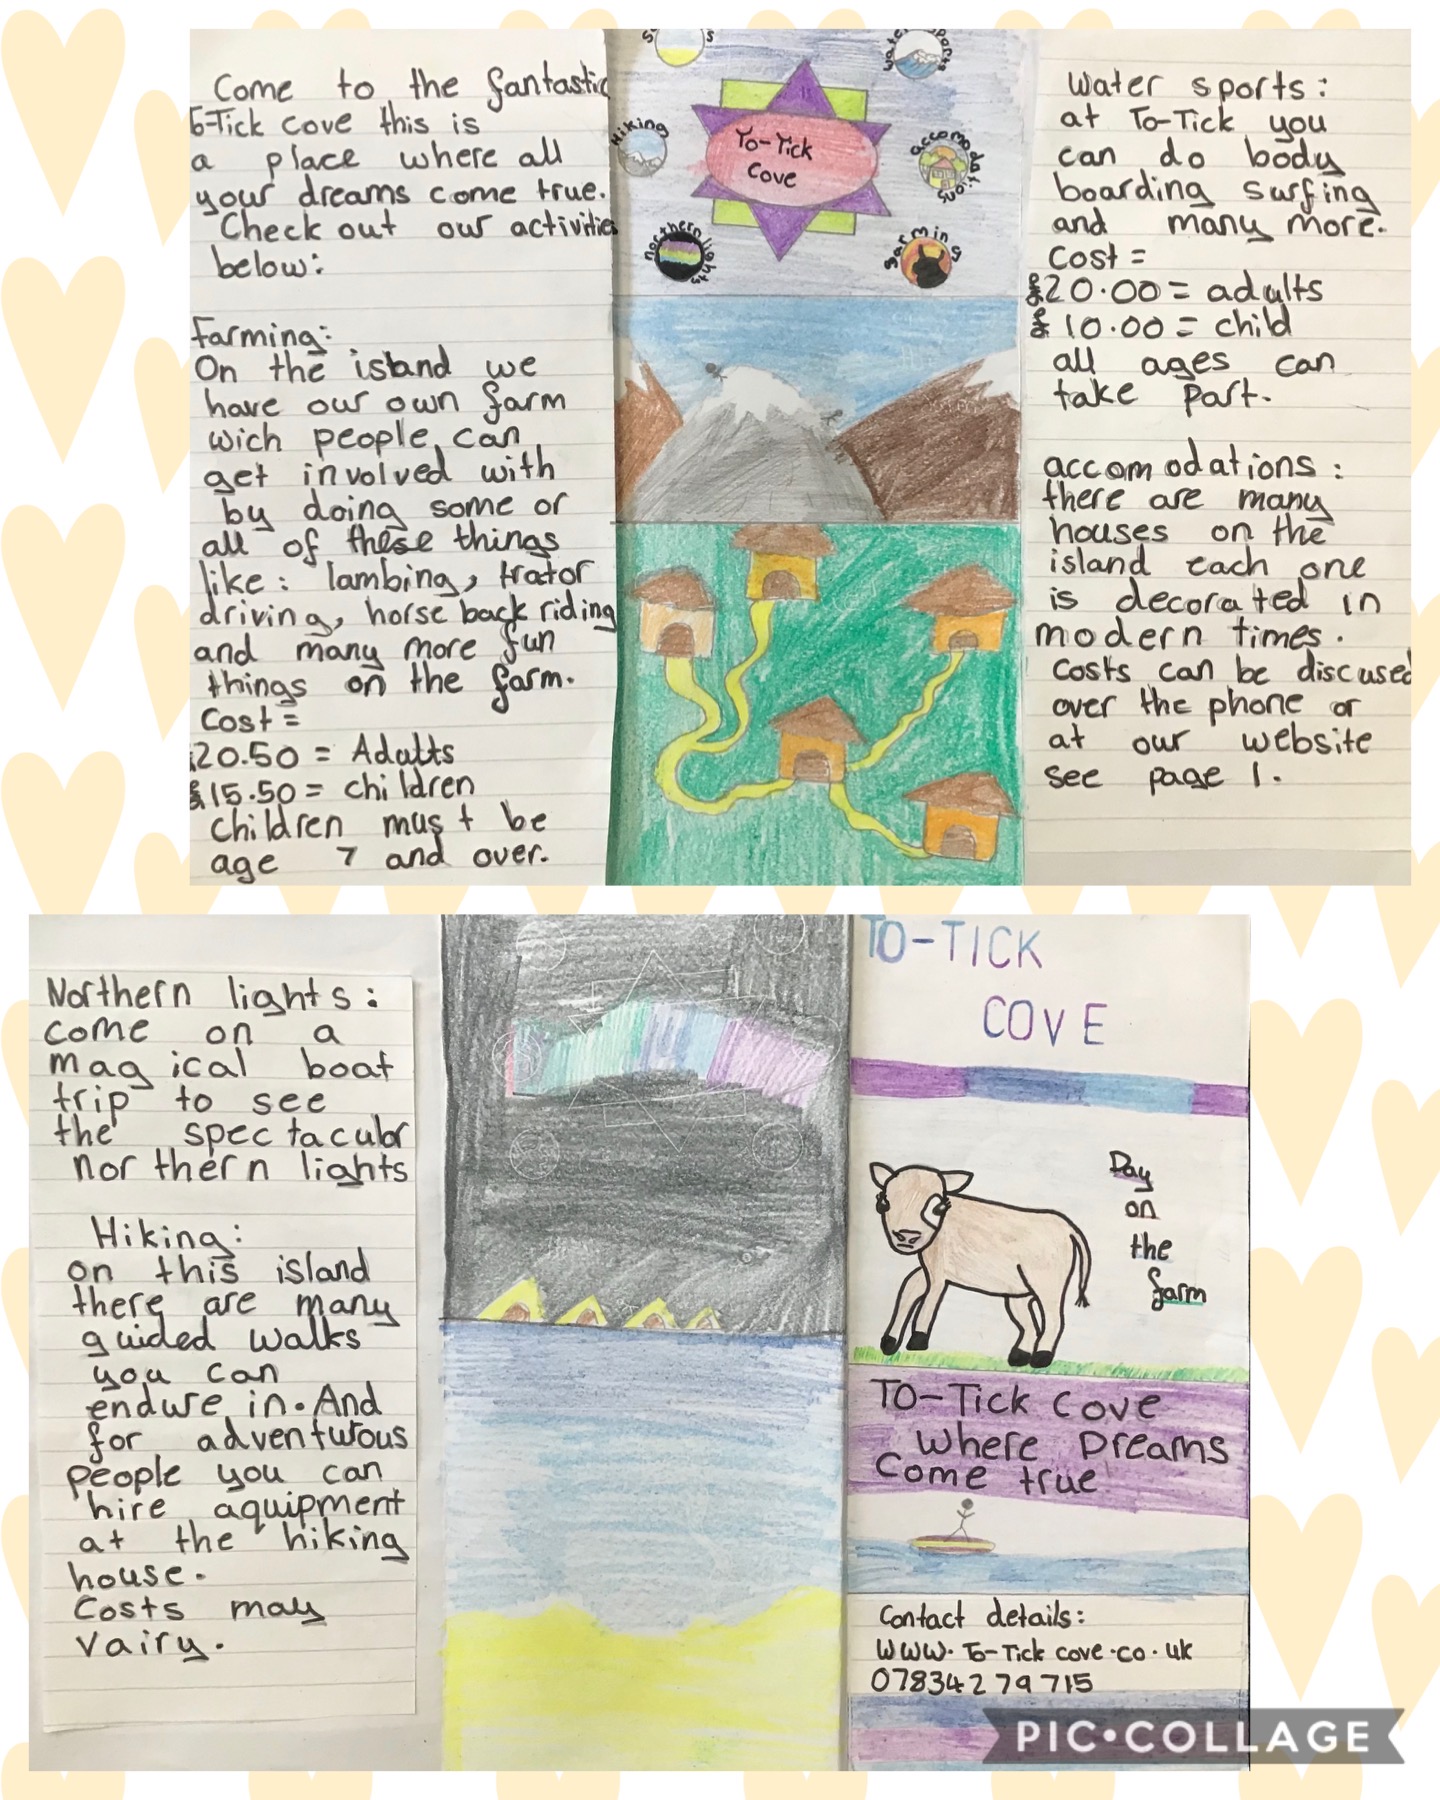 Come to the fantastic
To-Tick cove this is
a place where all
your dreams come true.
Check out our activities
below:
farming:
On the island we
have our own farm
wich people can
get involved with
by doing some or
all of these things
like: lambing, trator
driving, horse back riding
and many more fun
things on the farm.
Cost =
20.50 = Adults
£15.50 = children
children must be
age 7 and over.
water sports
Hiking
To-Tick
Cove
accomodations
northern lights
farming
water sports:
at To-Tick you
can do body
boarding surfing
and many more.
cost =
20.00 = adults
10.00 = child
all ages can
take part.
accomodations:
there are many
houses on the
island each one
is decorated in
modern times.
costs can be discused
over the phone or
at our website
see page 1.
Northern lights:
come on a
magical boat
trip to see
the spectacular
northern lights
Hiking:
on this island
there are many
guided walks
you can
endure in. And
for adventurous
people you can
hire aquipment
at the hiking
house.
Costs may
vairy.
TO-TICK
COVE
Day
on
the
farm
TO-Tick Cove
where Dreams
Come true
Contact details:
www.To-Tick cove.co.uk
07834279715
PIC•COLLAGE